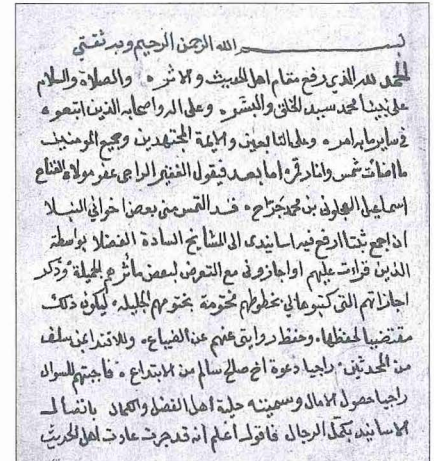 بسم الله الرحمن الرحيم وبه ثقتي
الحمد لله الذي رفع مقام اهل الحديث والاثر والصلاة والسلام
على نبينا محمد سيد الخلق والبشر وعلى اله واصحابه الذين اتبعوه
في ساير ما به امر وعلى التابعين والايمة المجتهدين وجميع المومنين
ما اضائت شمس وانار قمر اما بعد فيقول الفقير الراجى عفو مولاه الفتاح
اسماعيل العجلوني بن محمد جراح قد التمس منى بعض اخواني النبلا
ان اجمع ثبتا ارفع فيه اسانيدى الى المشايخ السادة الفضلا بواسطة
الذين قرات عليهم او اجازوني مع التعرض لبعض ماثرهم الجميلة وذكر
اجازاتهم التى كتبوها لي بخطوطهم مختومة بختومهم الجليلة ليكون ذلك
مقتضيا لحفظها وحفظ روايتى عنهم عن الضياع وللاقتدا بمن سلف
من المحدثين راجيا دعوة اخ صالح سالم من الابتداع فاجبتهم للسوال
راجيا حصول الامال وسميته حلية اهل الفضل والكمال باتصال
الاسانيد بكمل الرجال فاقول اعلم انه قد جرت عادت اهل الحديث